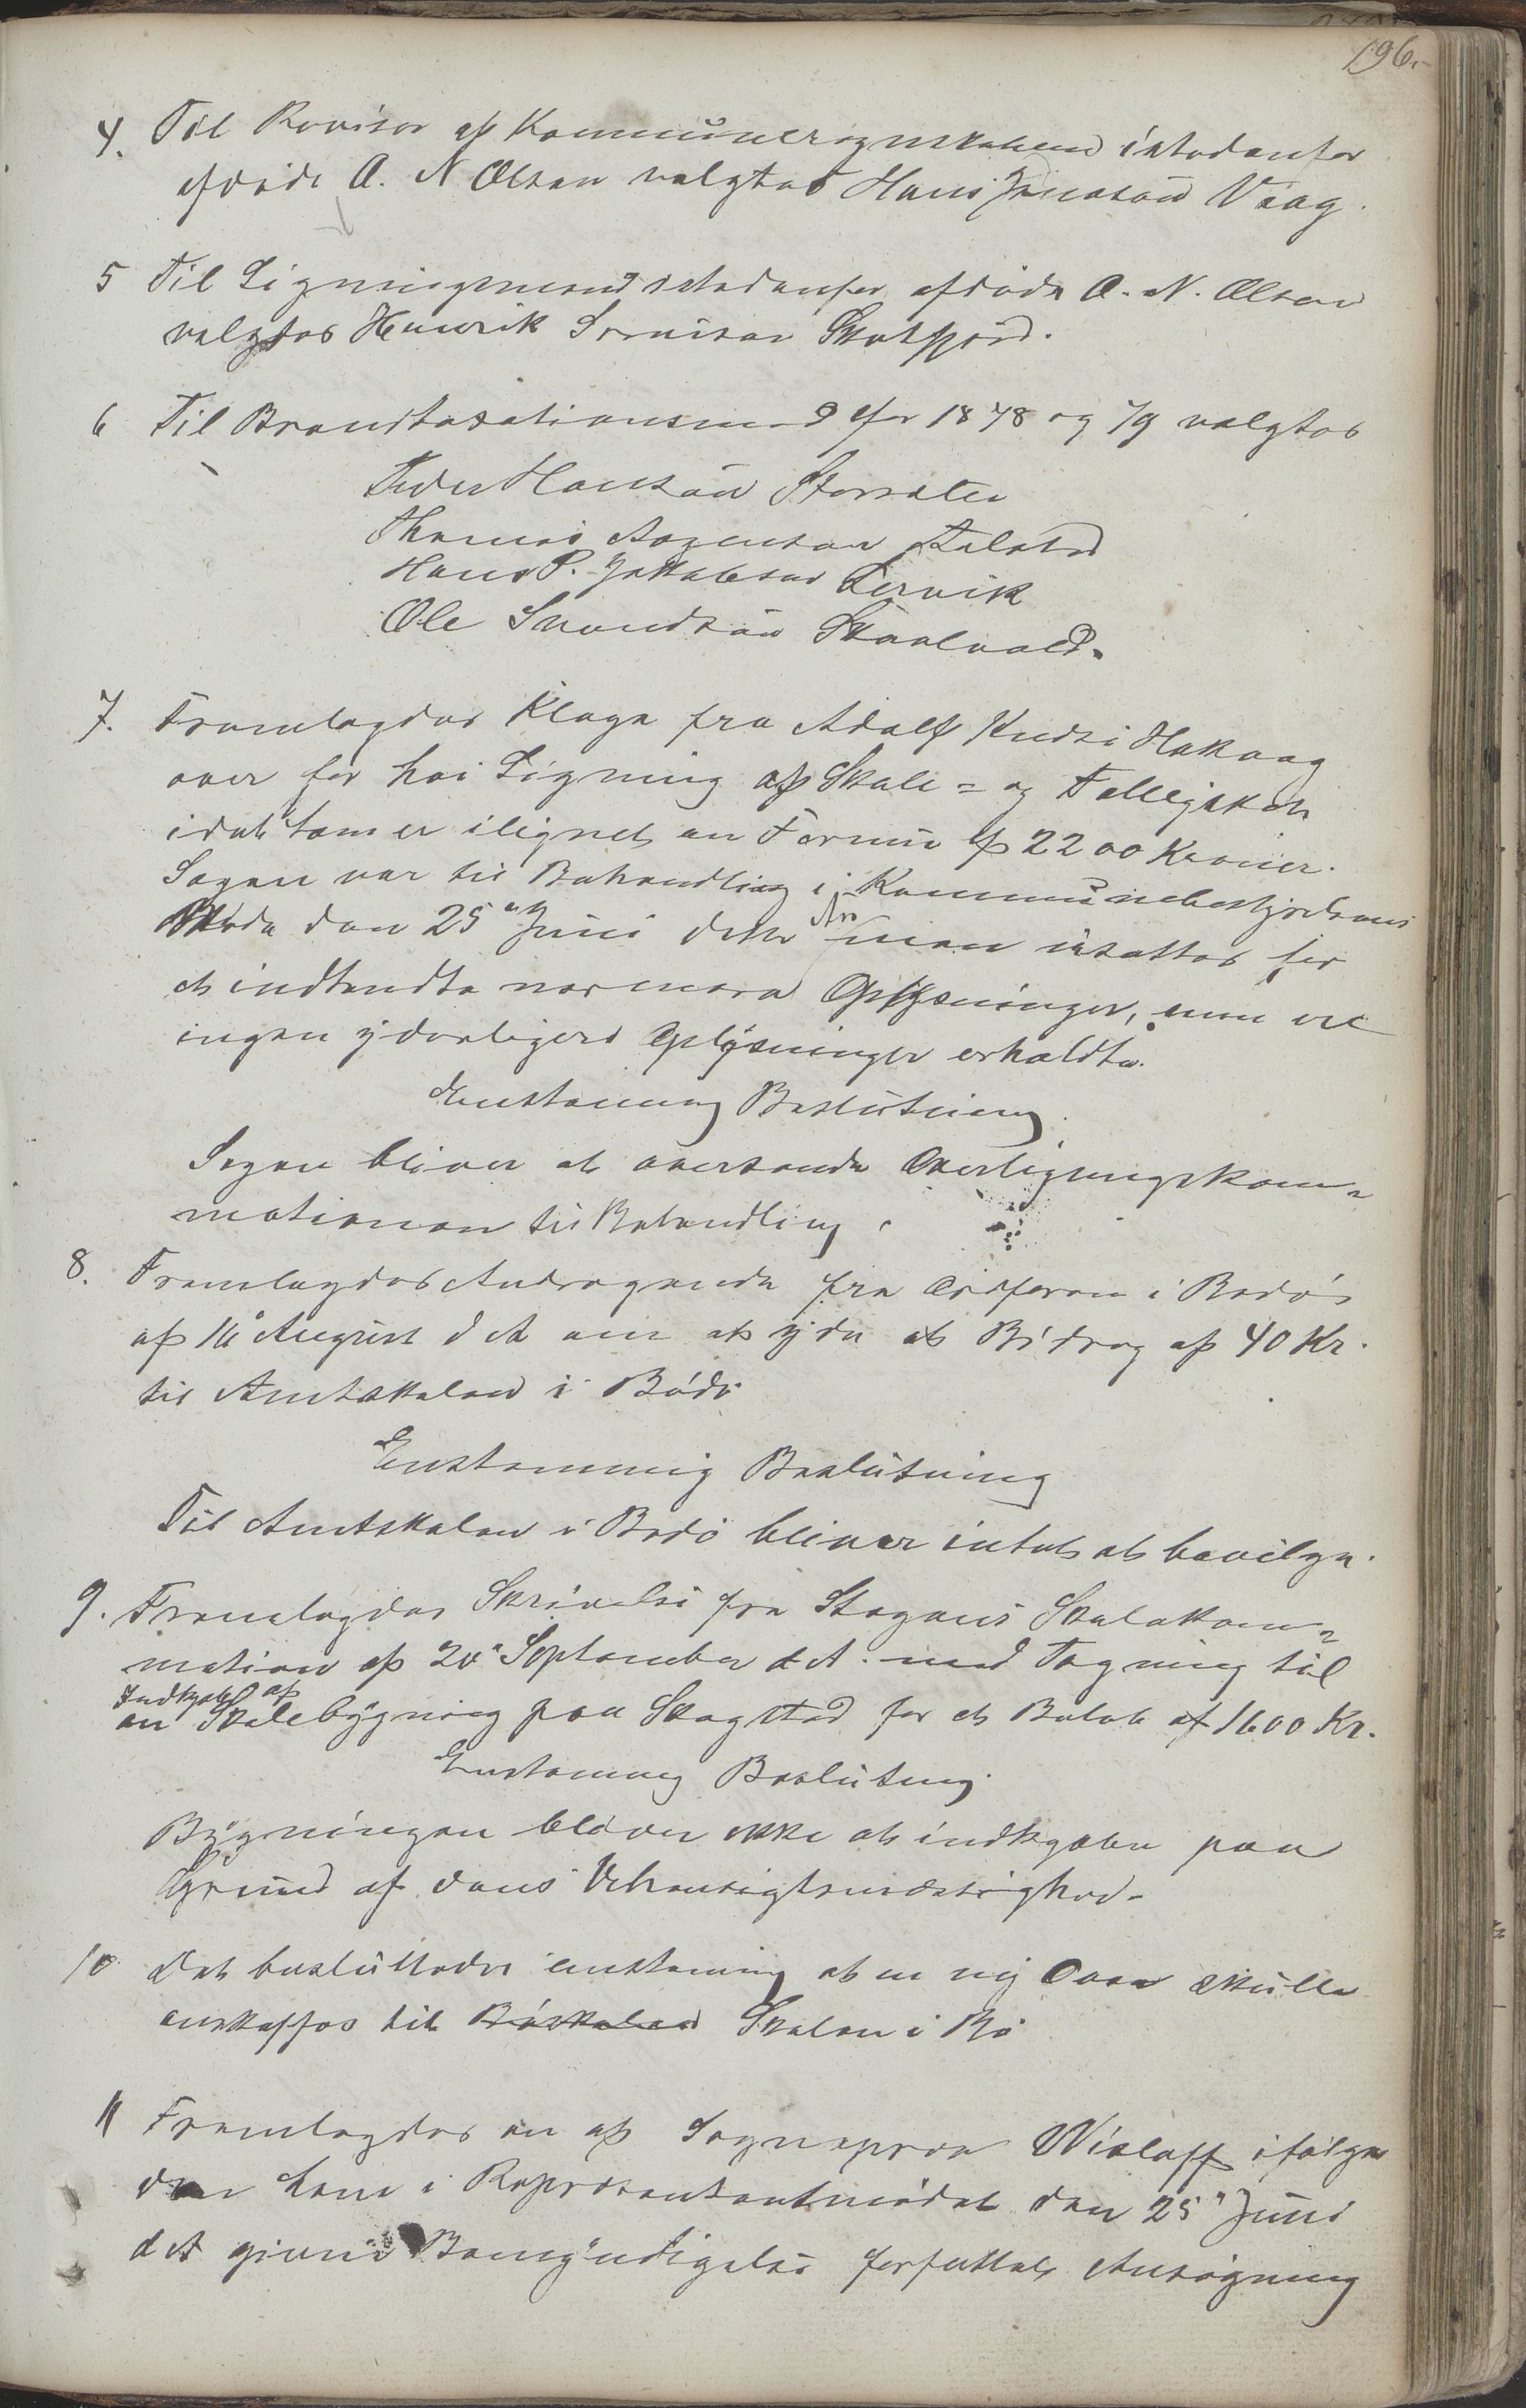 196.
4. Til Revisor af Kommuneregnskaberne istedenfor
afdøde A. N Olsen valgtes Hans Jensen Vaag.
5 Til Ligningsmand istedenfor afdøde A. N. Olsen
valgtes Henrik Sörensen Skotsfjord.
6 Til Brandtaxationsmænd for 1878 og 79 valgtes
Peder Hansen
Thomas Aagensen
Hans P. Jakobsen Lervik
Ole Svendsen Skaalvold.
7. Fremlagdes Klage fra Adolf Knds i Hakvaag
over for høi Ligning af Skole- og Fattigskat
idet han er ilignet en Formue af 2200 Kroner.
Sagen var til Behandling i Kommunebestyrelsens
Møde den 25de Juni dette Aar men udsattes for
at indhente nærmere Oplysninger, men ere
ingen yderligere Oplysninger erholdte.
Enstemmig Beslutning.
Sagen bliver at oversende Overligningskom-
missionen til Behandling.
8. Fremlagdes Andragende fra Ordføreren i Bodø
af 16 August d A om at yde et Bidrag af 40 Kr.
til Amtsskolen i Bodø
Enstemmig Beslutning
Til Amtsskolen i Bodø bliver intet at bevilge.
9. Fremlagdes Skrivelse fra Stegens Skolekom-
mission af 20de September d.A. med Tegning til
Indkjøb af
en Skolebygning paa Skagstad for et Beløb af 1600 Kr.
Enstemmig Beslutning.
Bygningen bliver ikke at indkjøbe paa
Grund af dens Uhensigtsmæssighed.
10 Det besluttedes enstemmig at en ny Ovn skulle
anskaffes til Bøskolen Skolen i Bø
11 Fremlagdes en af Sogneprest Wisløff ifølge
den ham i Repræsentantmødet den 25de Juni
d A givne Bemyndigelse forfattet Ansøgning